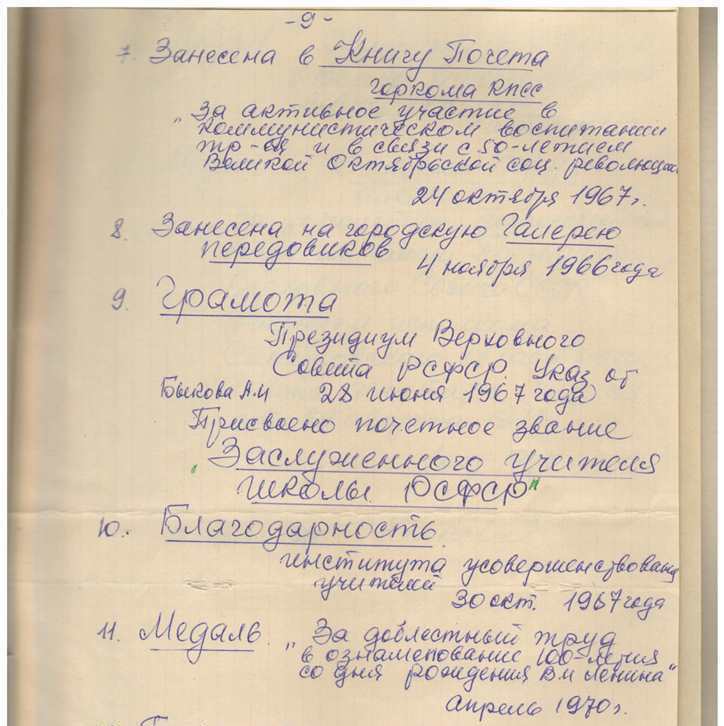 -9-
7. Занесена в Книгу Почета
горкома КПСС
„За активное участие в
коммунистическом воспитании
тр-ся и в связи с 50-летием
Великой Октябрьской соц. революции
24 октября 1967г.
8. Занесена на городскую Галерею
передовиков
4 ноября 1966 года
9. Грамота
Президиум Верховного
Совета РСФСР. Указ от
Быкова А.И 28 июня 1967 года
Присвоено почетное звание
"Заслуженного учителя
школы РСФСР"
10. Благодарность
института усовершенствован
учителей
30 окт. 1967 года
11. Медаль „За доблестный труд
в ознаменование 100-летия
со дня рождения В.И Ленина"
апрель 1970г.